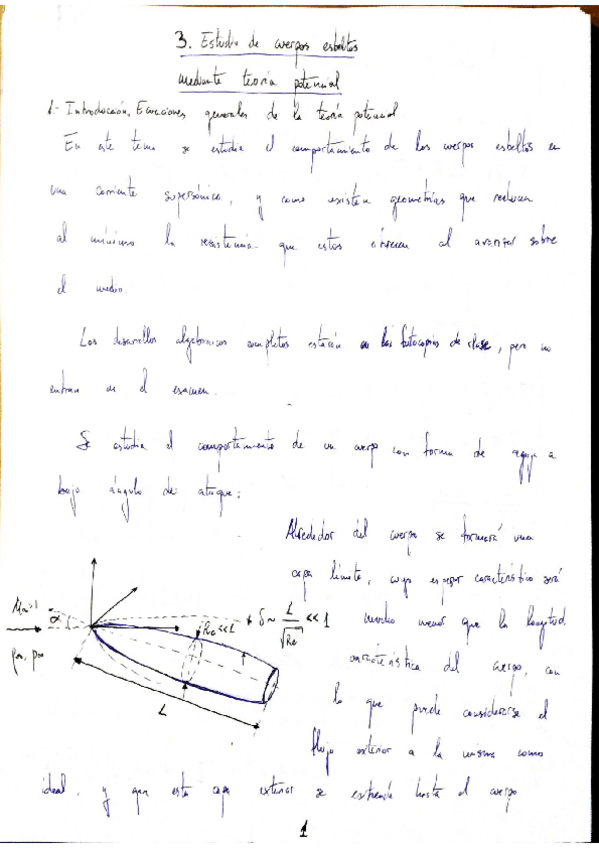 3. Estudio de cuerpos esbeltos
mediante teoría potencial
1.- Introducción. Ecuaciones generales de la teoría potencial
En este tema se estudia el comportamiento de los cuerpos esbeltos en
una corriente supersónica, y como existen geometrías que reducen
al mínimo la resistencia que estos ofrecen al avanzar sobre
el medio.
Los desarrollos algebraicos completos estarán en las fotocopias de clase, pero no
entran en el examen.
Se estudia el comportamiento de un cuerpo con forma de aguja a
bajo ángulo de ataque:
Alrededor del cuerpo se formará una
capa límite, cuyo espesor característico será
M∞>1
α
R₀ << L
* δ ~ L/√Re << 1
mucho menor que la longitud
ρ∞, p∞
característica del cuerpo, con
L
lo que puede considerarse el
flujo exterior a la misma como
ideal, y que esta capa exterior se extiende hasta el cuerpo
1